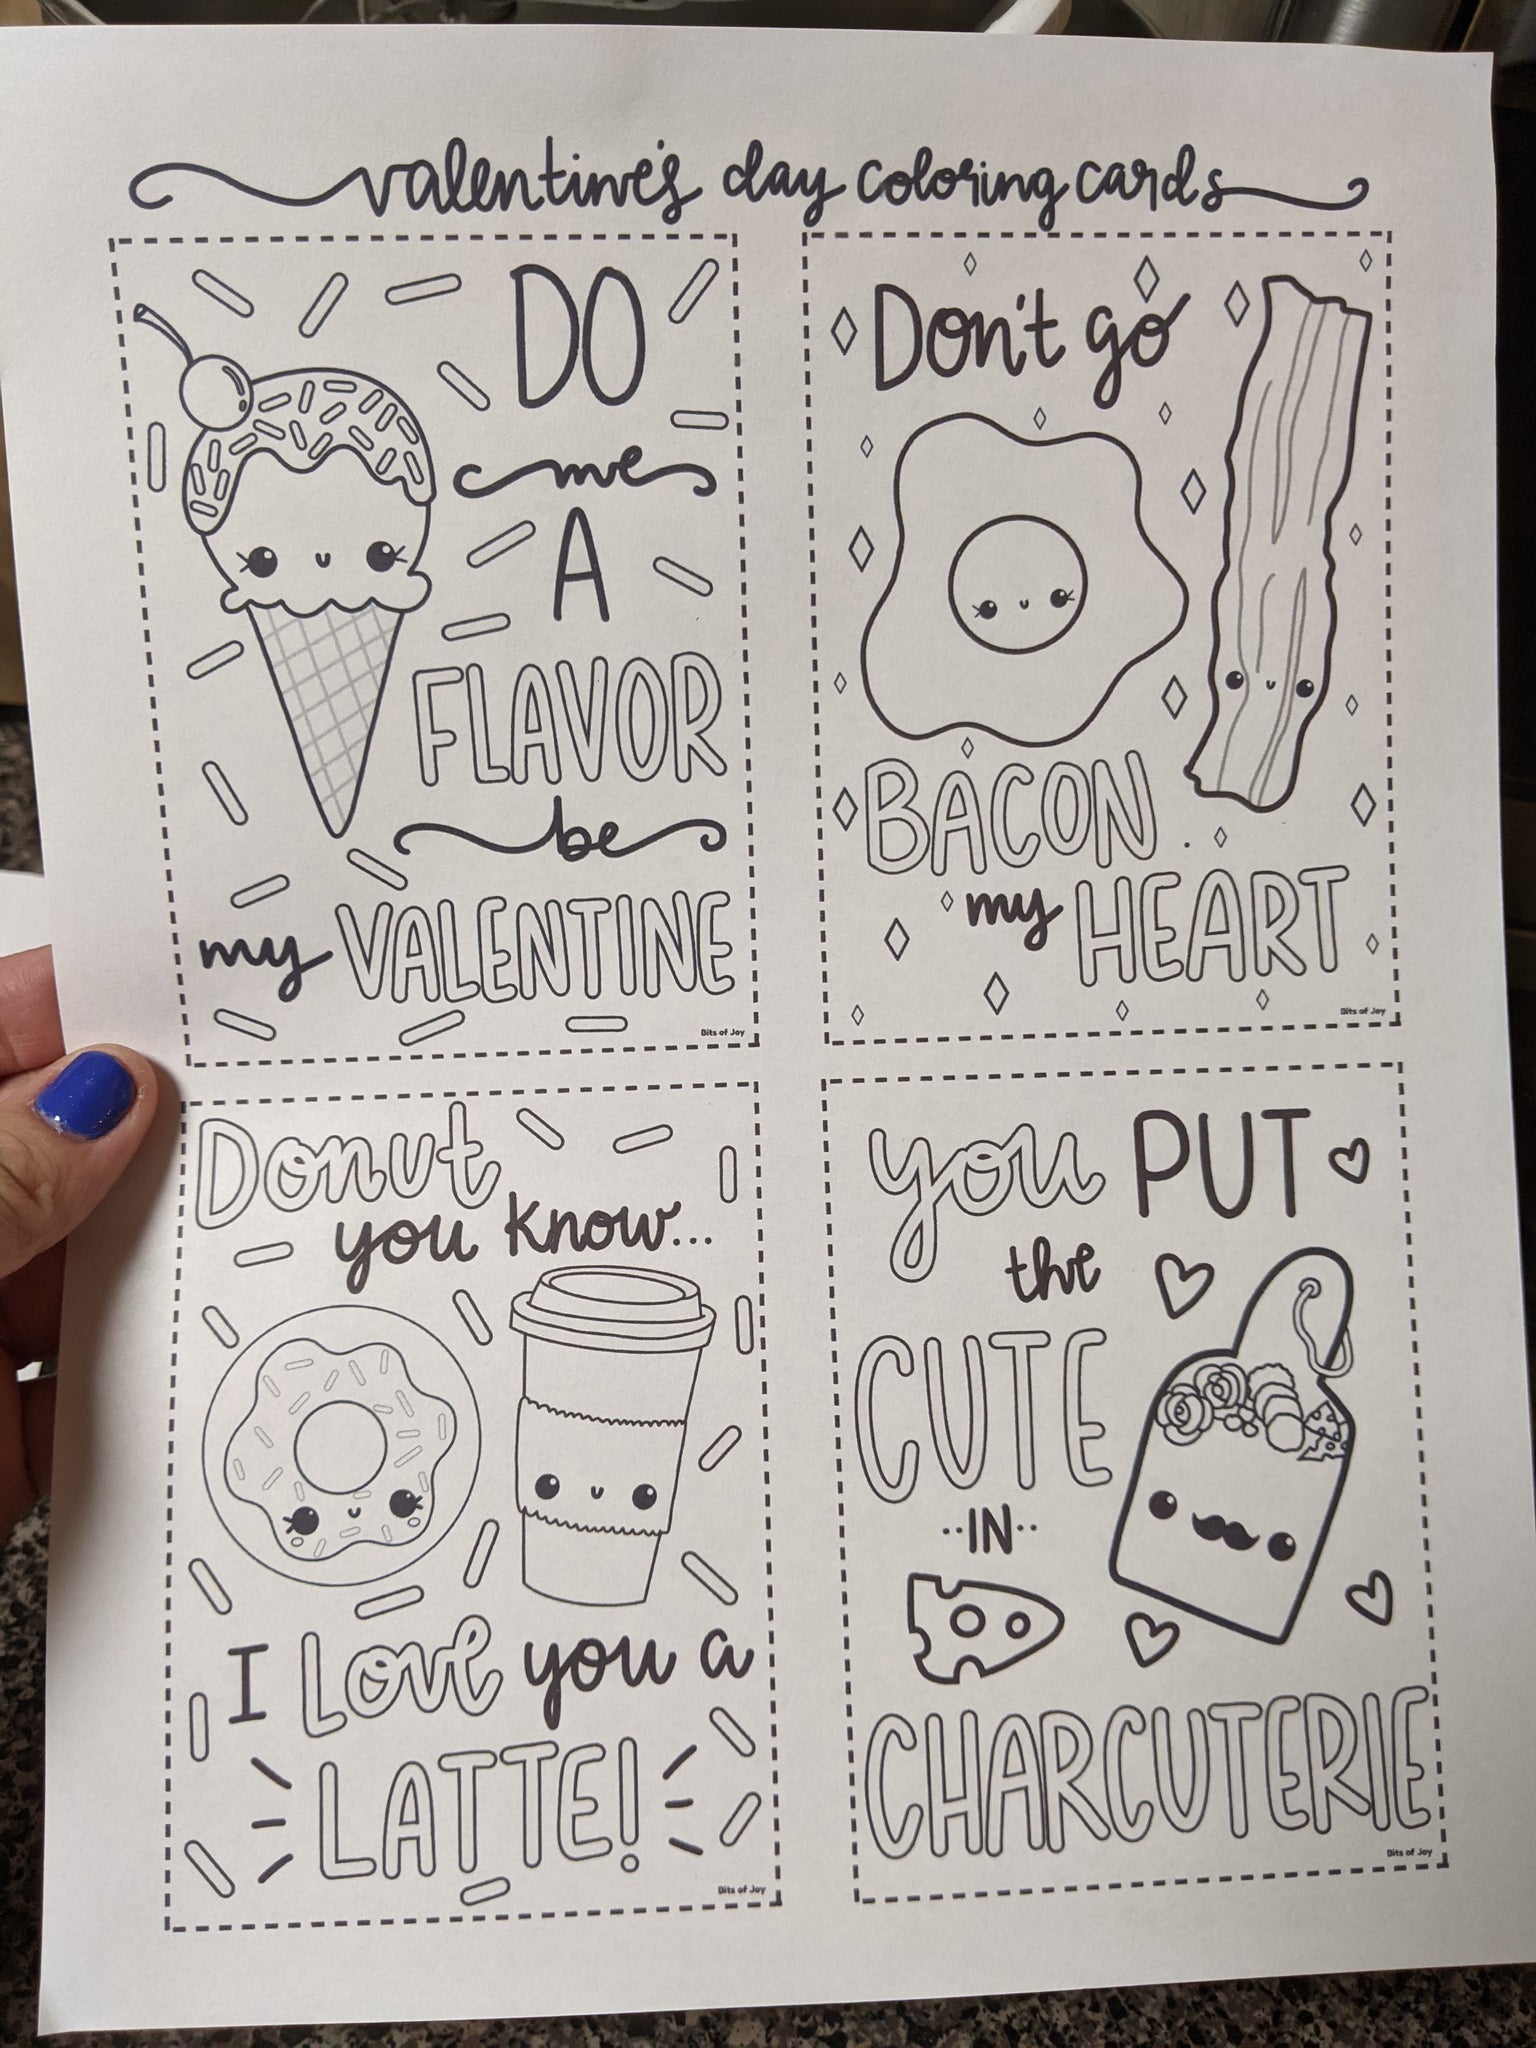 valentine's day coloring cards
DO
me
A
FLAVOR
be
my VALENTINE
Bits of Joy
Don't go
BACON
my HEART
Bits of Joy
Donut
you know...
I Love you a
LATTE!
Bits of Joy
you PUT
the
CUTE
··IN··
CHARCUTERIE
Bits of Joy